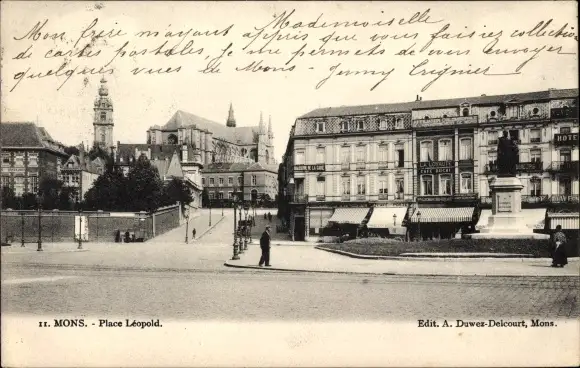 Mademoiselle
Mon frère m'ayant appris que vous faisiez collection
de cartes postales, je me permets de vous envoyer
quelques vues de Mons. — Jenny Crignier
HOTEL
CAFÉ
11. MONS. - Place Léopold.
Edit. A. Duwez-Delcourt, Mons.